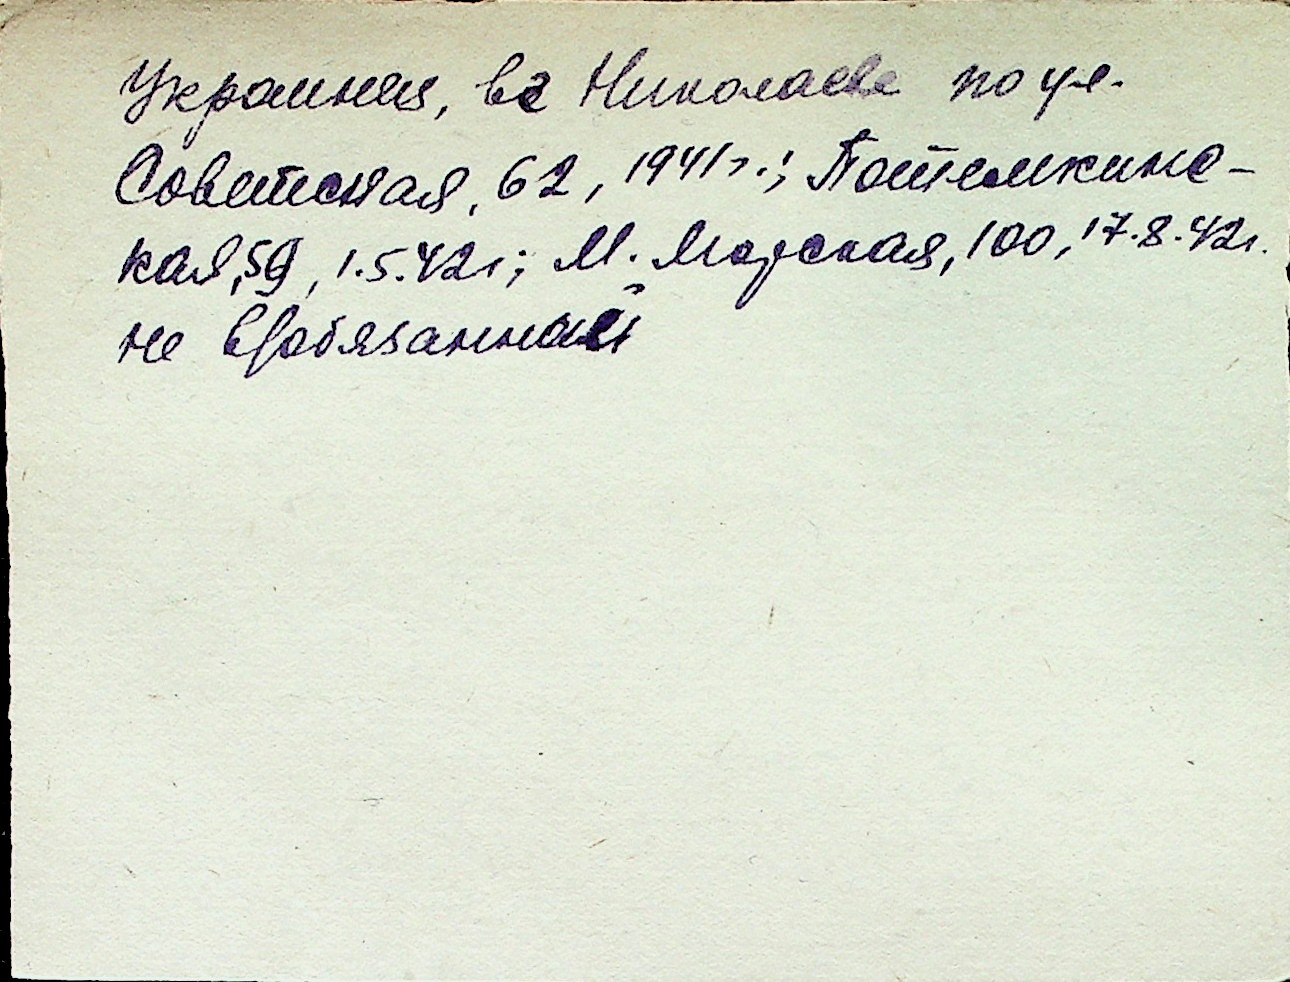 Украинец, в г Николаеве по ул.
Советская, 62, 1941 г.; Потемкинс-
кая, 59, 1.5.42 г; М. Морская, 100, 17.8.42 г.
не в/обязанный